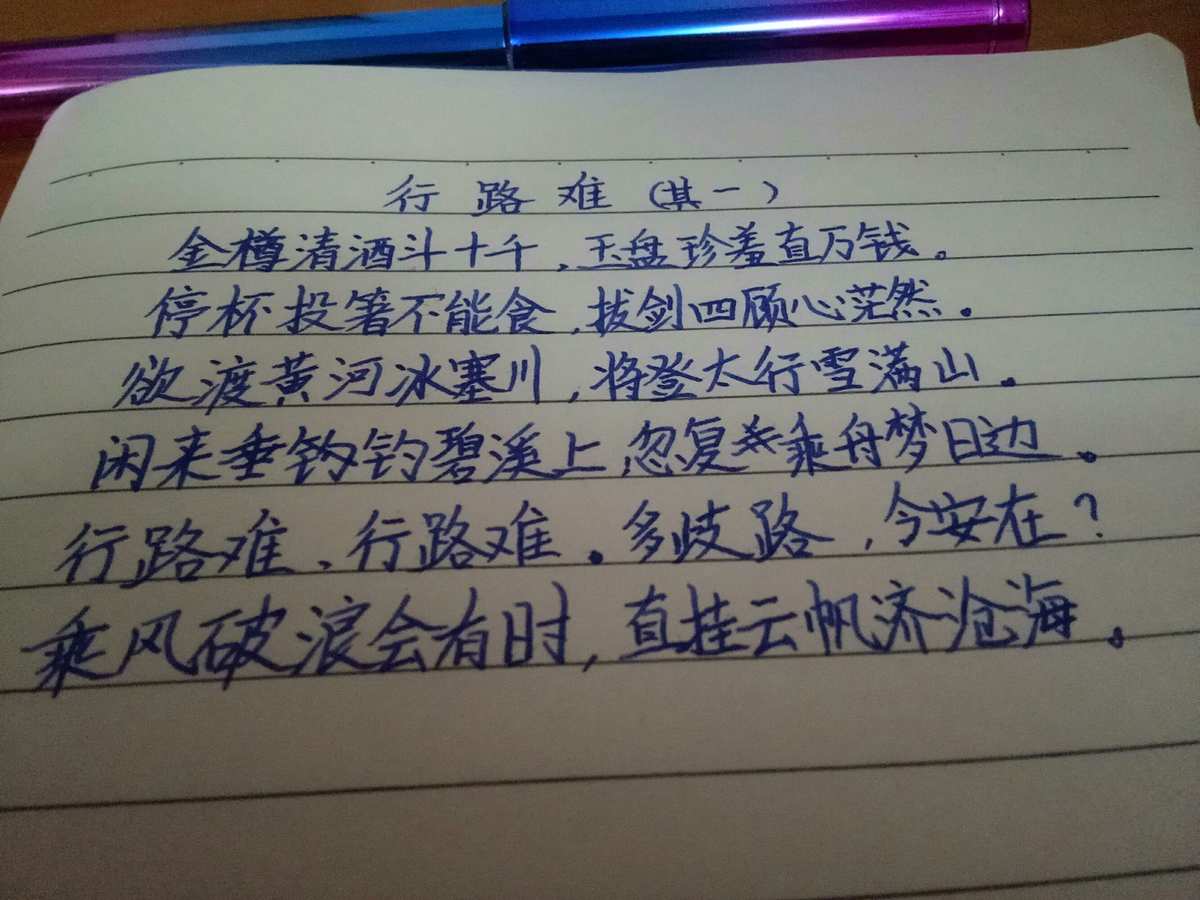 行路难(其一)
金樽清酒斗十千,玉盘珍羞直万钱。
停杯投箸不能食,拔剑四顾心茫然。
欲渡黄河冰塞川,将登太行雪满山。
闲来垂钓钓碧溪上,忽复乘舟梦日边。
行路难、行路难。多歧路,今安在?
乘风破浪会有时,直挂云帆济沧海。